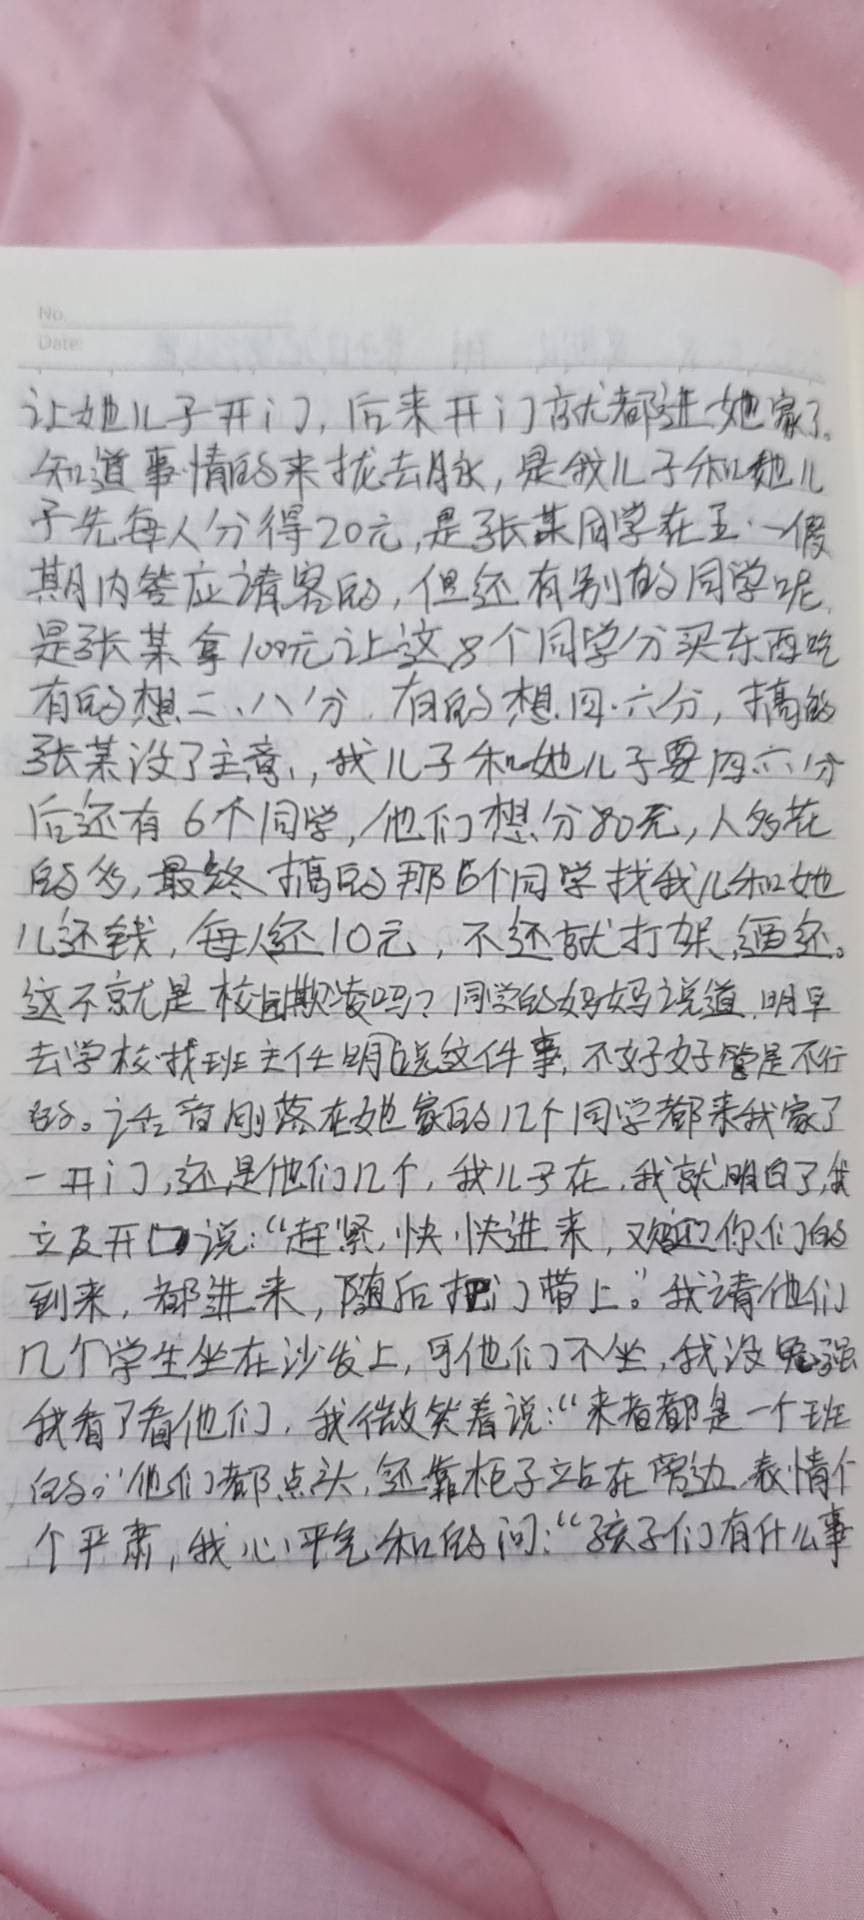 No.
Date:
让她儿子开门，后来开门就都进她家了。
知道事情的来拢去脉，是我儿子和她儿
子先每人分得20元，是张某同学在五·一假
期内答应请客的，但还有别的同学呢，
是张某拿100元让这8个同学分买东西吃
有的想二、八分．有的想四·六分，搞的
张某没了主意，我儿子和她儿子要四六分
后还有6个同学，他们想分80元，人多花
的多，最终搞的那6个同学找我儿和她
儿还钱，每人还10元，不还就打架，逼还。
这不就是校园欺凌吗？同学的妈妈说道，明早
去学校找班主任明说这件事，不好好管是不行
的。话音刚落在她家的几个同学都来我家了
一开门，还是他们几个，我儿子在，我就明白了，我
立友开口说：“赶紧，快快进来，欢迎你们的
到来，都进来，随后把门带上。”我请他们
几个学生坐在沙发上，可他们不坐，我没勉强
我看了看他们，我微笑着说：“来者都是一个班
的。”他们都点头，还靠柜子站在旁边，表情个
个严肃，我心平气和的问：“孩子们有什么事